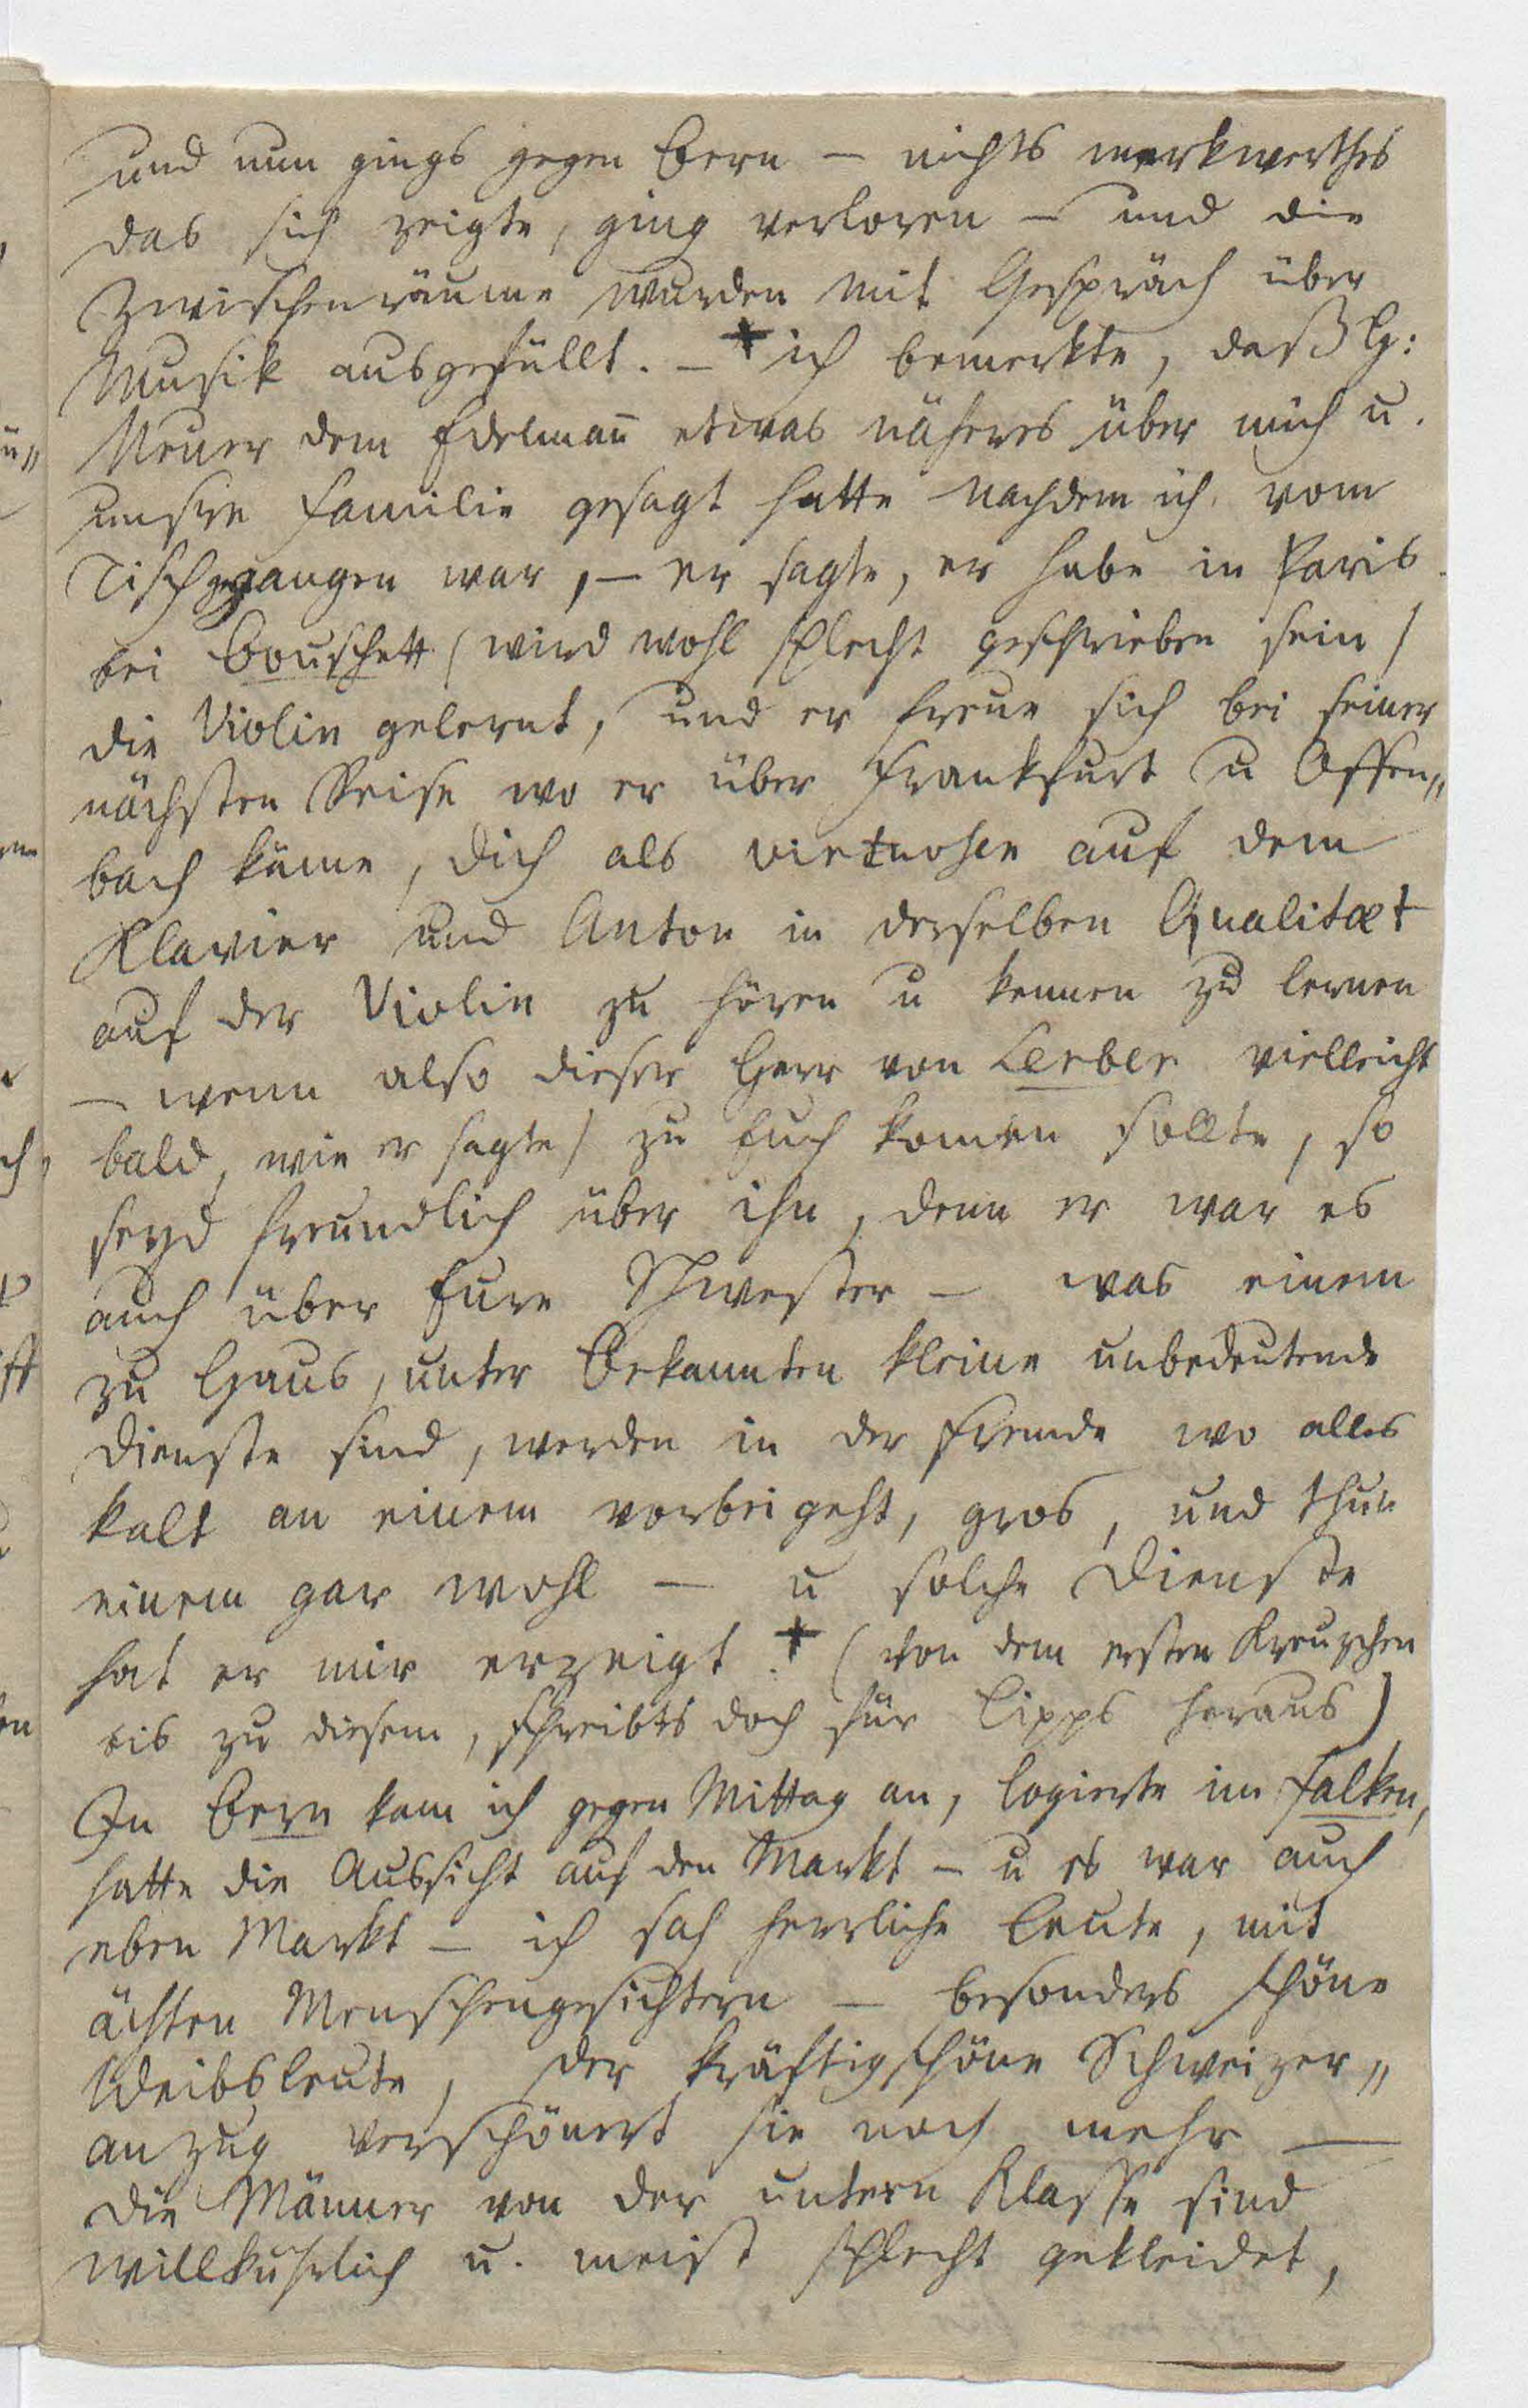 und nun gings gegen Bern – nichts merkwerthes
das sich zeigte, ging verloren – und die
Zwischenräume wurden mit Gespräch über
Musik ausgefüllt. – + ich bemerkte, daß H:
Meuer dem Edelmañ etwas näheres über mich u.
unsre Familie gesagt hatte nachdem ich vom
Tisch gegangen war, – er sagte, er habe in Paris
bei Bouschett (wird wohl schlecht geschrieben sein)
die Violin gelernt, und er freue sich bei seiner
nächsten Reise wo er über Frankfurt u Offen„
bach käme, dich als virtuosen auf dem
Klavier und Anton in derselben Qualitæt
auf der Violin zu hören u kennen zu lernen
– wenn also dieser Herr von Lerber vielleicht
bald, wie er sagte) zu Euch kom̄en sollte, so
seyd freundlich über ihn, denn er war es
auch über Eure Schwester – was einem
zu Haus, unter Bekannten kleine unbedeutende
Dienste sind, werden in der Fremde wo alles
kalt an einem vorbei geht, gros, und thun
einem gar wohl – u solche Dienste
hat er mir erzeigt. + (von dem ersten Kreuzchen
bis zu diesem, schreibts doch für Lipps heraus)
In Bern kam ich gegen Mittag an, logierte im Falken,
hatte die Aussicht auf den Markt – u es war auch
eben Markt – ich sah herrliche Leute, mit
ächten Menschengesichtern – besonders schöne
Weibsleute, der kräftigschöne Schweizer„
anzug verschönert sie noch mehr –
die Männer von der untern Klasse sind
willkuhrlich u. meist schlecht gekleidet,